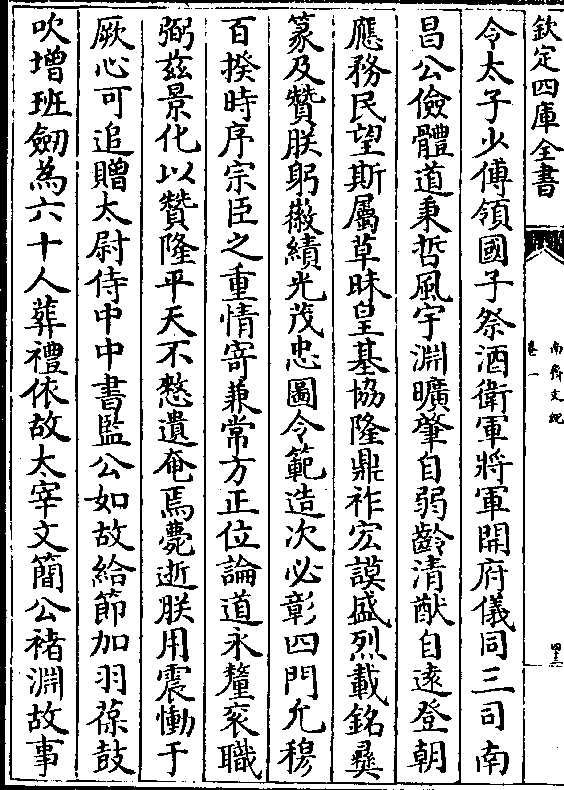 欽定四庫全書
南齊文紀
卷一
四三
令太子少傅領國子祭酒衛軍將軍開府儀同三司南
昌公儉體道秉哲風宇淵曠肇自弱齡清猷自遠登朝
應務民望斯屬草昧皇基協隆鼎祚宏謨盛烈載銘彝
篆及贊朕躬徽績光茂忠圖令範造次必彰四門允穆
百揆時序宗臣之重情寄兼常方正位論道永釐衮職
弼兹景化以贊隆平天不憗遺奄焉薨逝朕用震慟于
厥心可追贈太尉侍中中書監公如故給節加羽葆鼓
吹增班劒為六十人葬禮依故太宰文簡公褚淵故事